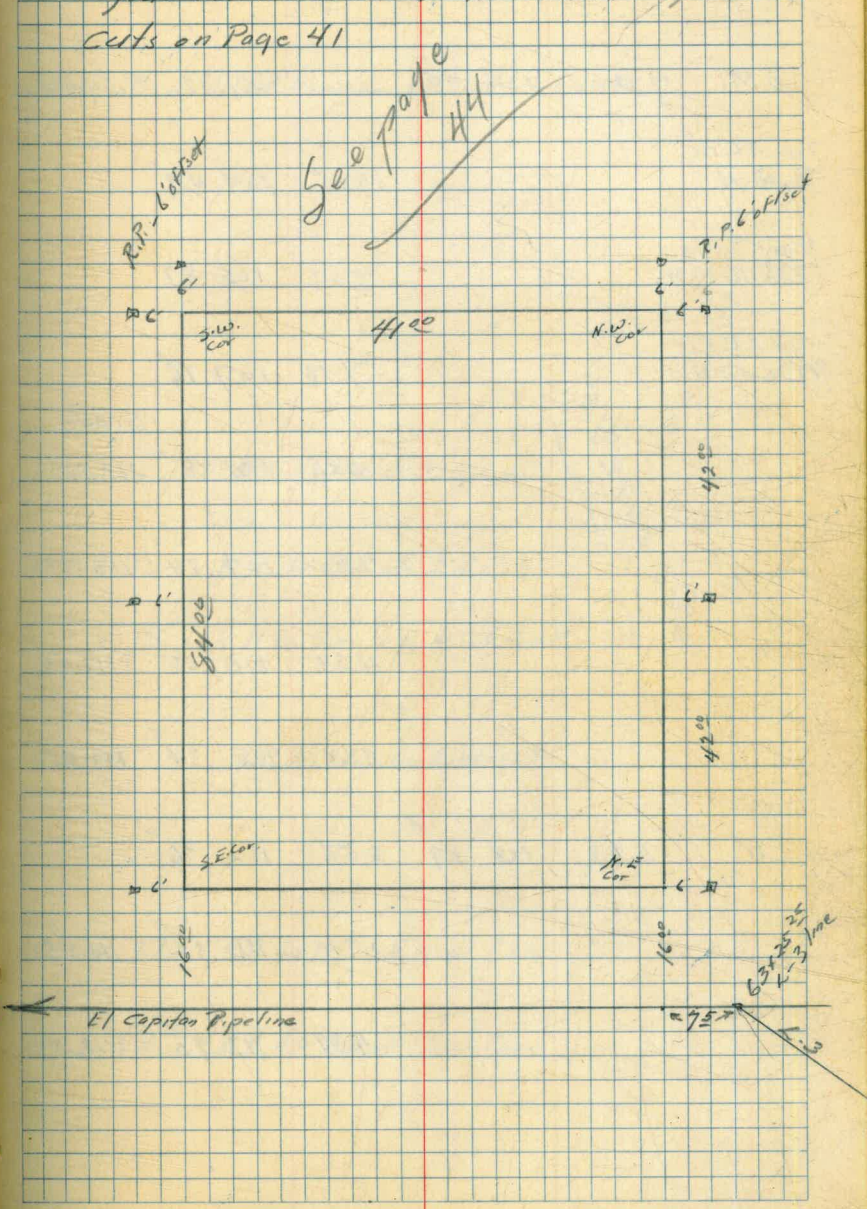 Cuts on Page 41
See Page
44
R.P. - 6' offset
R.P. 6' offset
6'
6'
6'
6'
S.W.
Cor
41 00
N.W.
Cor
42 00
6'
6'
84 00
42 00
S.E. Cor.
N.E
Cor
6'
6
16 00
16 00
63+25 25
L-3 line
El Capitan Pipeline
75
L-3